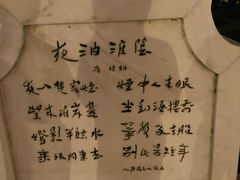 夜泊淮陰
唐 項斯
夜入楚家煙 煙中人未眠
望來淮岸盡 坐到酒樓前
燈影半臨水 箏聲多在船
乘流向東去 別此易經年